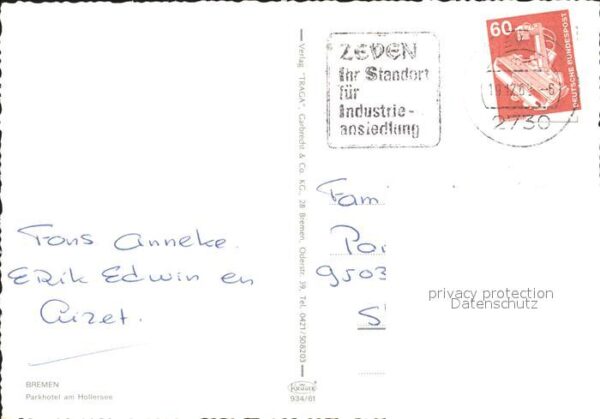 ZEVEN
Ihr Standort
für
Industrie-
ansiedlung
60
DEUTSCHE BUNDESPOST
2730
Verlag "TRAGA", Garbrecht & Co. KG., 28 Bremen, Oderstr. 39, Tel. 0421/508203
Fam
Po
9503
S
privacy protection
Datenschutz
Fons Anneke.
Erik Edwin en
BREMEN
Parkhotel am Hollersee
KRÜGER
934/61